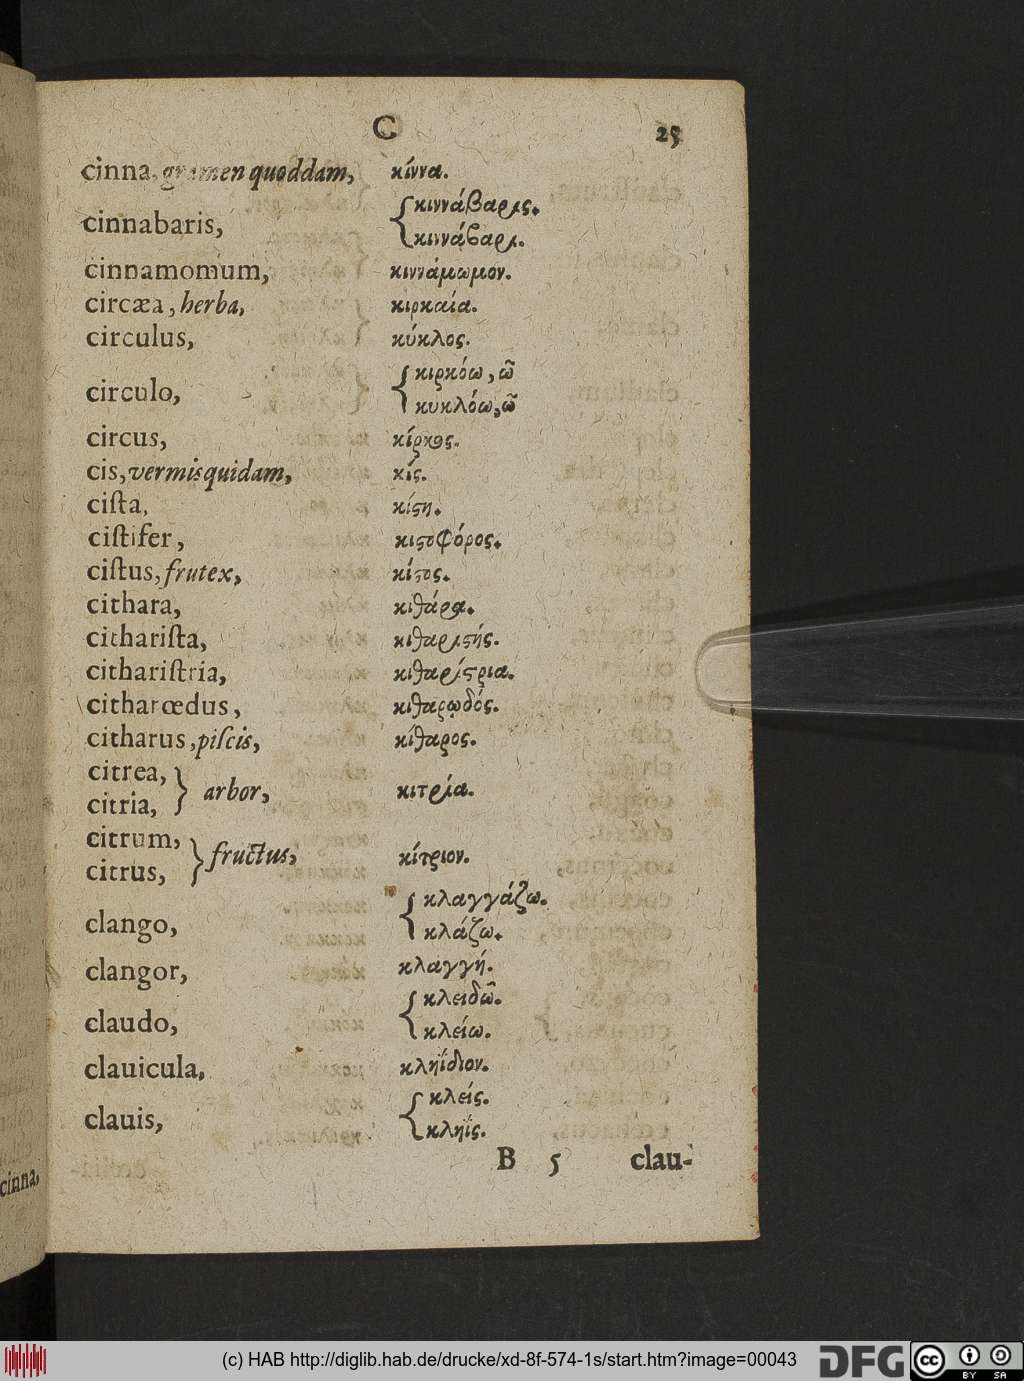 C 25
cinna, gramen quoddam, κίννα.
cinnabaris, {κιννάβαρις. κιννάβαρι.
cinnamomum, κιννάμωμον.
circæa, herba, κιρκαία.
circulus, κύκλος.
circulo, {κιρκόω, ῶ κυκλόω, ῶ
circus, κίρκος.
cis, vermis quidam, κίς.
ciſta, κίϛη.
ciſtifer, κιϛοφόρος.
ciſtus, frutex, κίϛος.
cithara, κιθάρα.
cithariſta, κιθαριϛής.
cithariſtria, κιθαρίϛρια.
citharœdus, κιθαρῳδός.
citharus, piſcis, κίθαρος.
citrea, citria, } arbor, κιτρία.
citrum, citrus, } fructus, κίτριον.
clango, {κλαγγάζω. κλάζω.
clangor, κλαγγή.
claudo, {κλειδῶ. κλείω.
clauicula, κληΐδιον.
clauis, {κλείς. κληΐς.
B 5 clau-
cinna,
(c) HAB http://diglib.hab.de/drucke/xd-8f-574-1s/start.htm?image=00043
DFG
cc BY SA